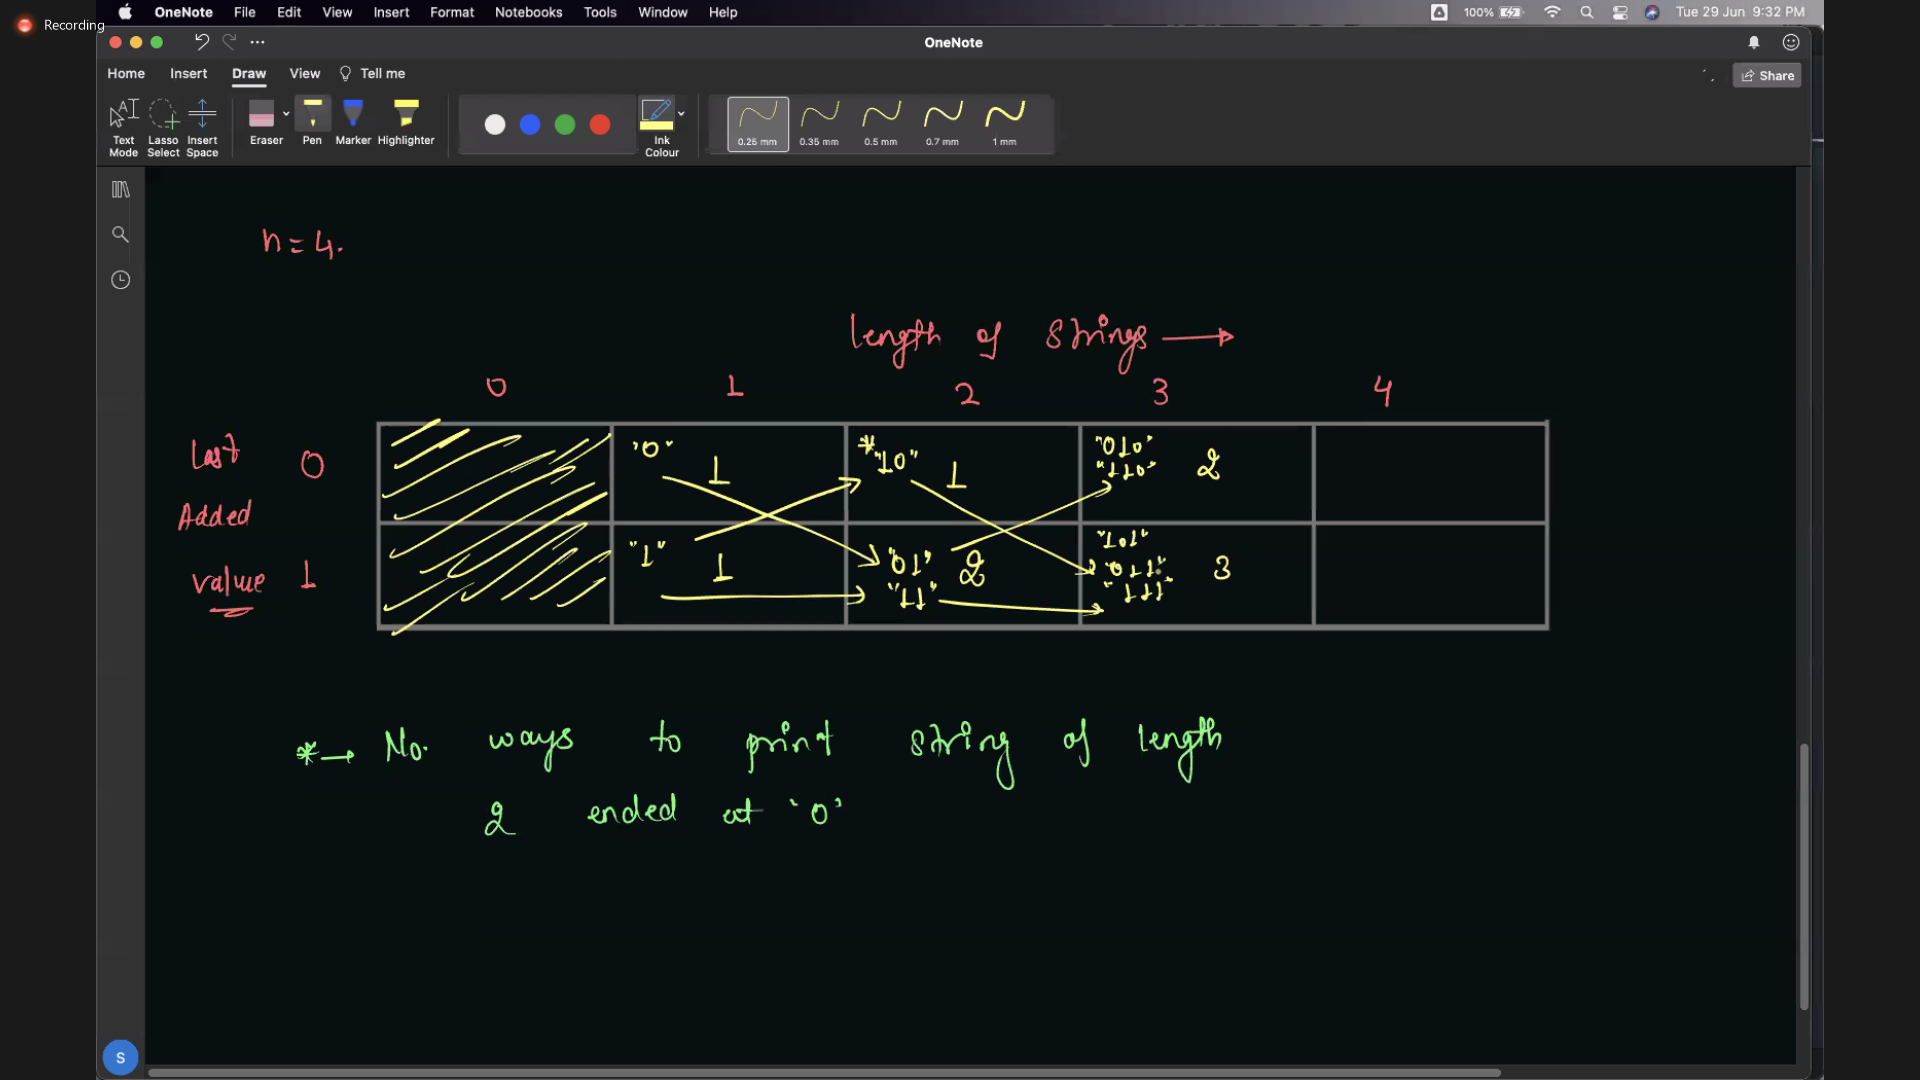 Recording
OneNote File Edit View Insert Format Notebooks Tools Window Help
100% Tue 29 Jun 9:32 PM
OneNote
Home Insert Draw View Tell me
Share
Text Mode
Lasso Select
Insert Space
Eraser
Pen
Marker
Highlighter
Ink Colour
0.25 mm 0.35 mm 0.5 mm 0.7 mm 1 mm
n=4.
length of strings →
0 1 2 3 4
Last 0
Added
value 1
"0" 1
*"10" 1
"010"
"110" 2
"1" 1
"01" 2
"11"
"101"
"011" 3
"111"
*→ No. ways to print string of length
2 ended at '0'
S